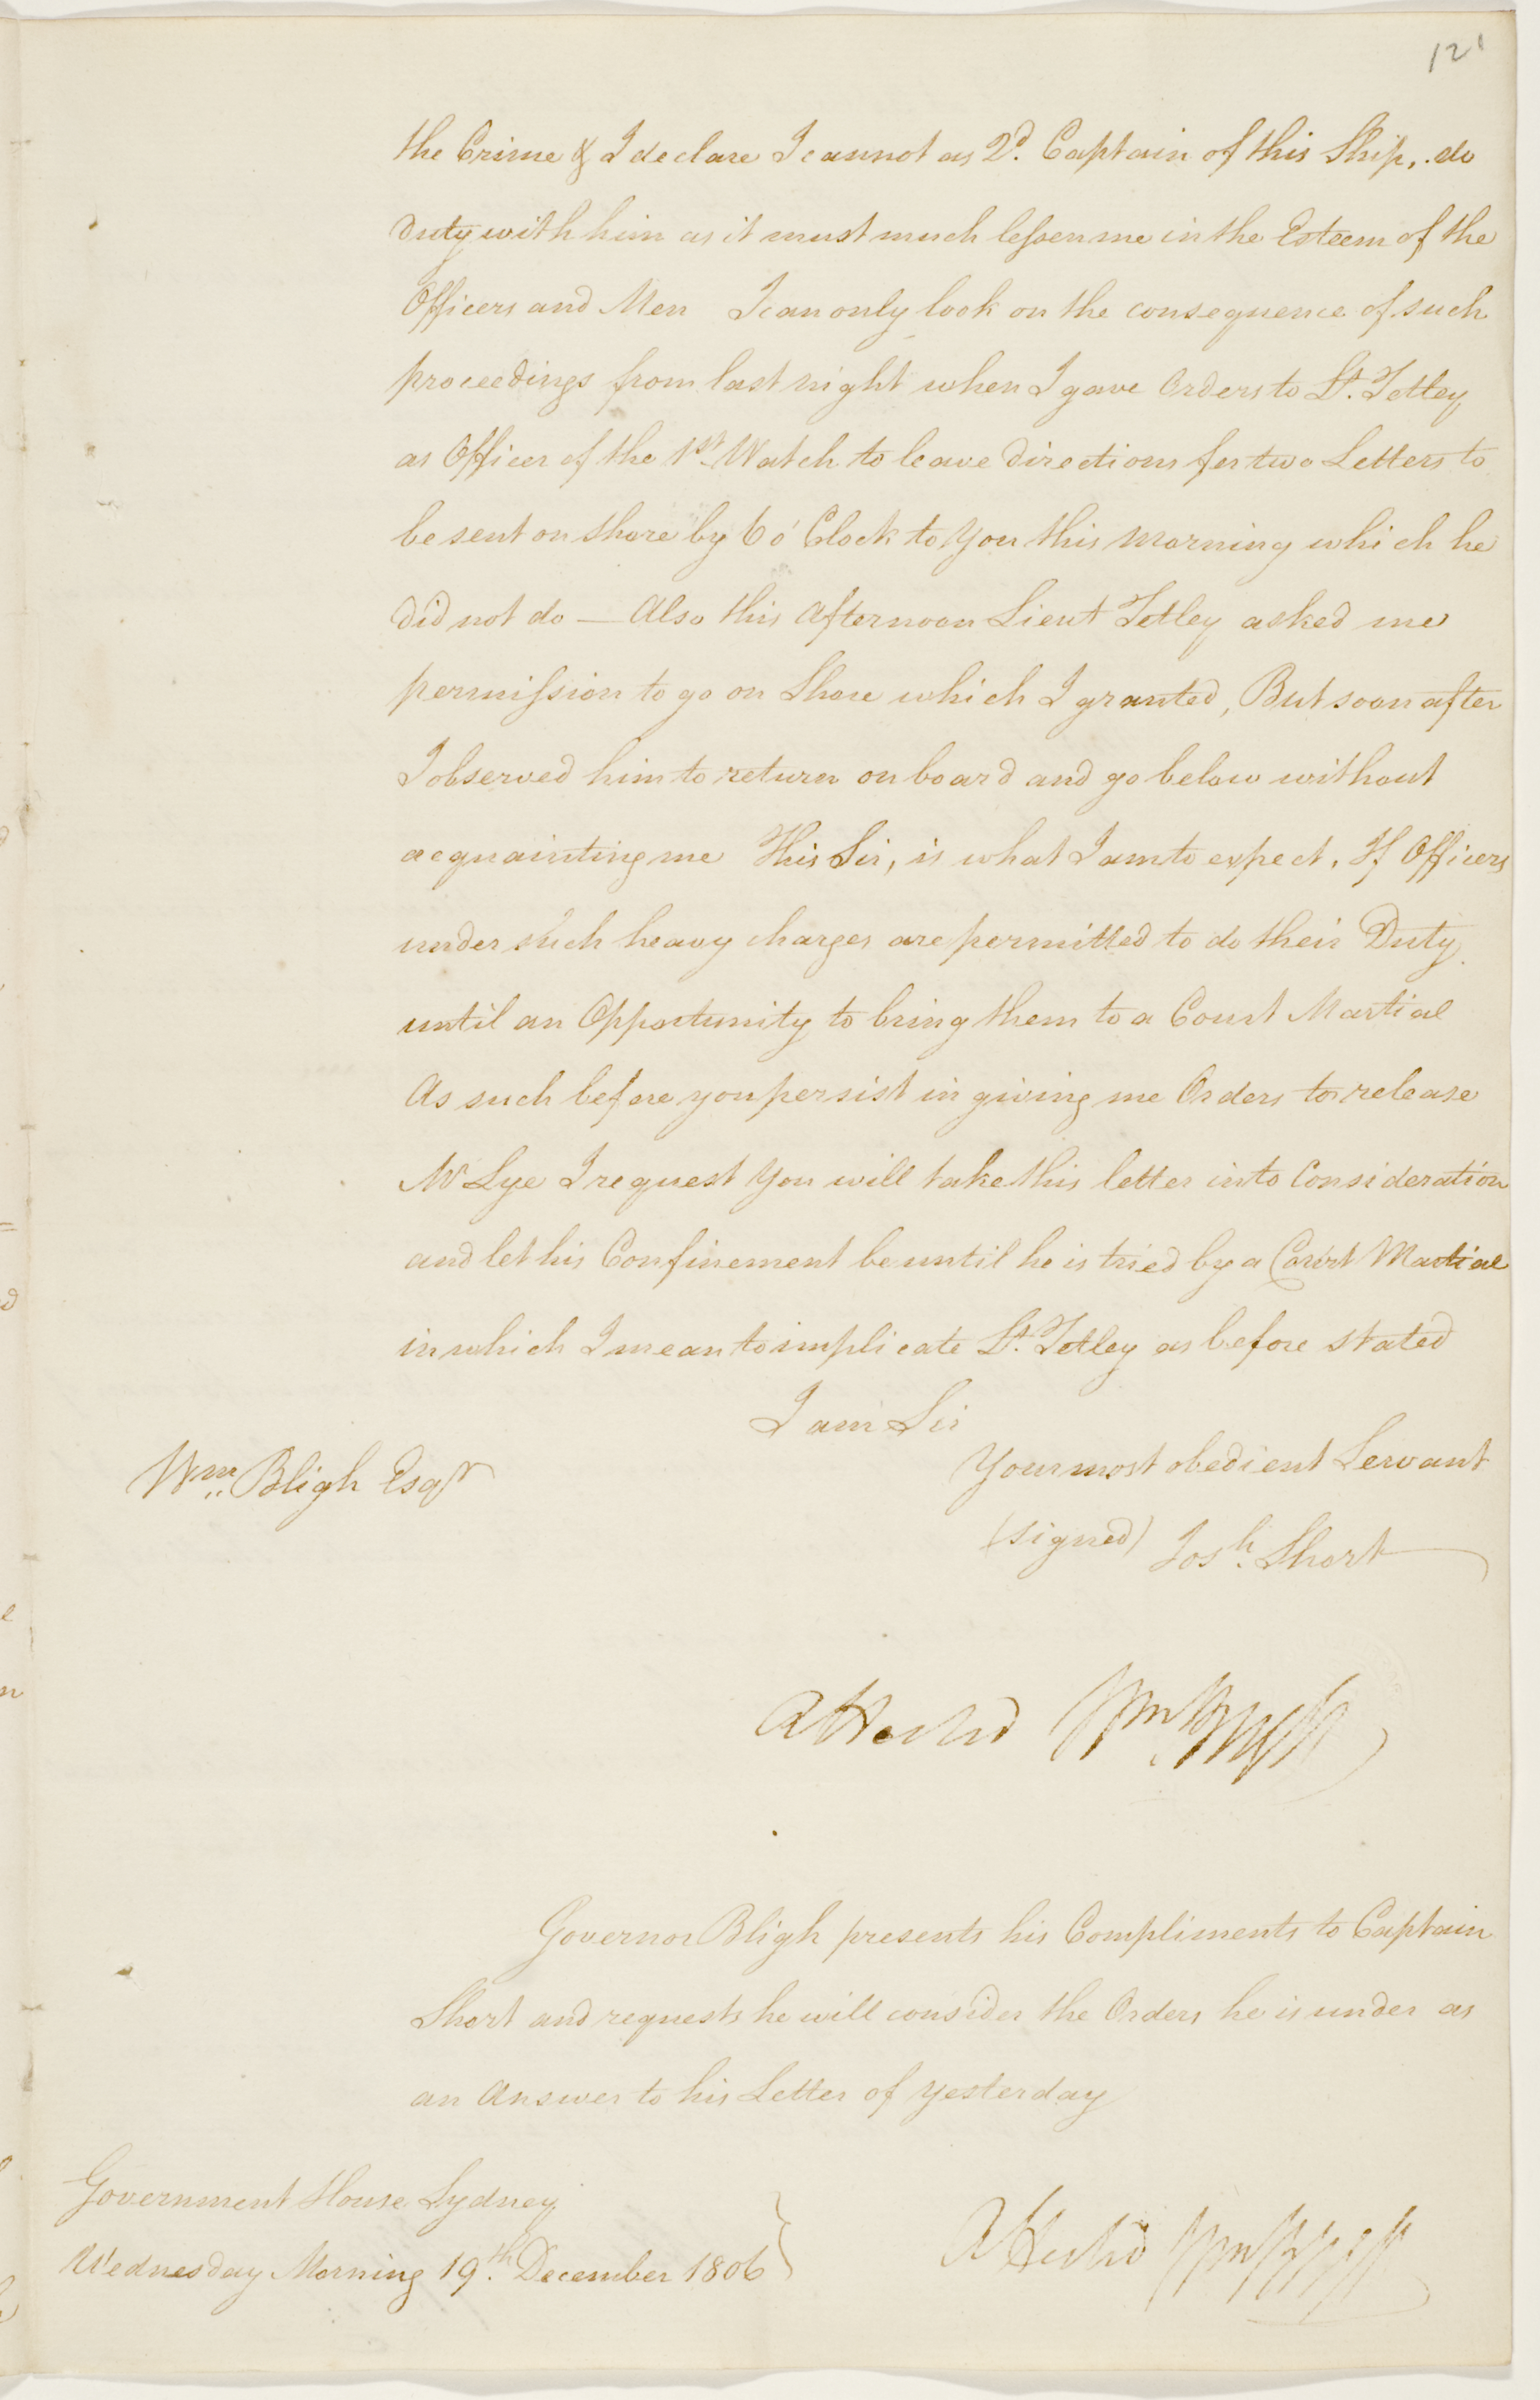 121
the Crime & I declare I cannot as 2d. Captain of this Ship, do
duty with him as it must much lessen me in the Esteem of the
Officers and Men I can only look on the consequence of such
proceedings from last night when I gave Orders to Lt. Tetley
as Officer of the 1st Watch to leave directions for two Letters to
be sent on shore by 6 o'Clock to You this Morning which he
did not do — Also this Afternoon Lieut Tetley asked me
permission to go on Shore which I granted, But soon after
I observed him to return on board and go below without
acquainting me This Sir, is what I am to expect, If Officers
under such heavy charges are permitted to do their Duty
until an Opportunity to bring them to a Court Martial
As such before you persist in giving me Orders to release
Mr Lye I request You will take this letter into Consideration
and let his Confinement be until he is tried by a Court Martial
in which I mean to implicate Lt. Tetley as before stated
I am Sir
Your most obedient Servant
Wm. Bligh Esqr
(signed) Josh. Short
Attested Wm Bligh
Governor Bligh presents his Compliments to Captain
Short and requests he will consider the Orders he is under as
an Answer to his Letter of yesterday
Government House Sydney
Wednesday Morning 19th. December 1806
Attested Wm Bligh